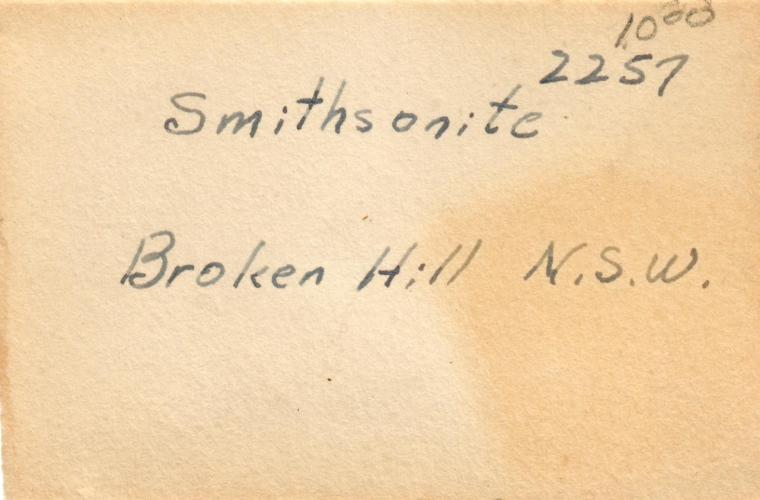 10⁰⁰
2257
Smithsonite
Broken Hill N.S.W.